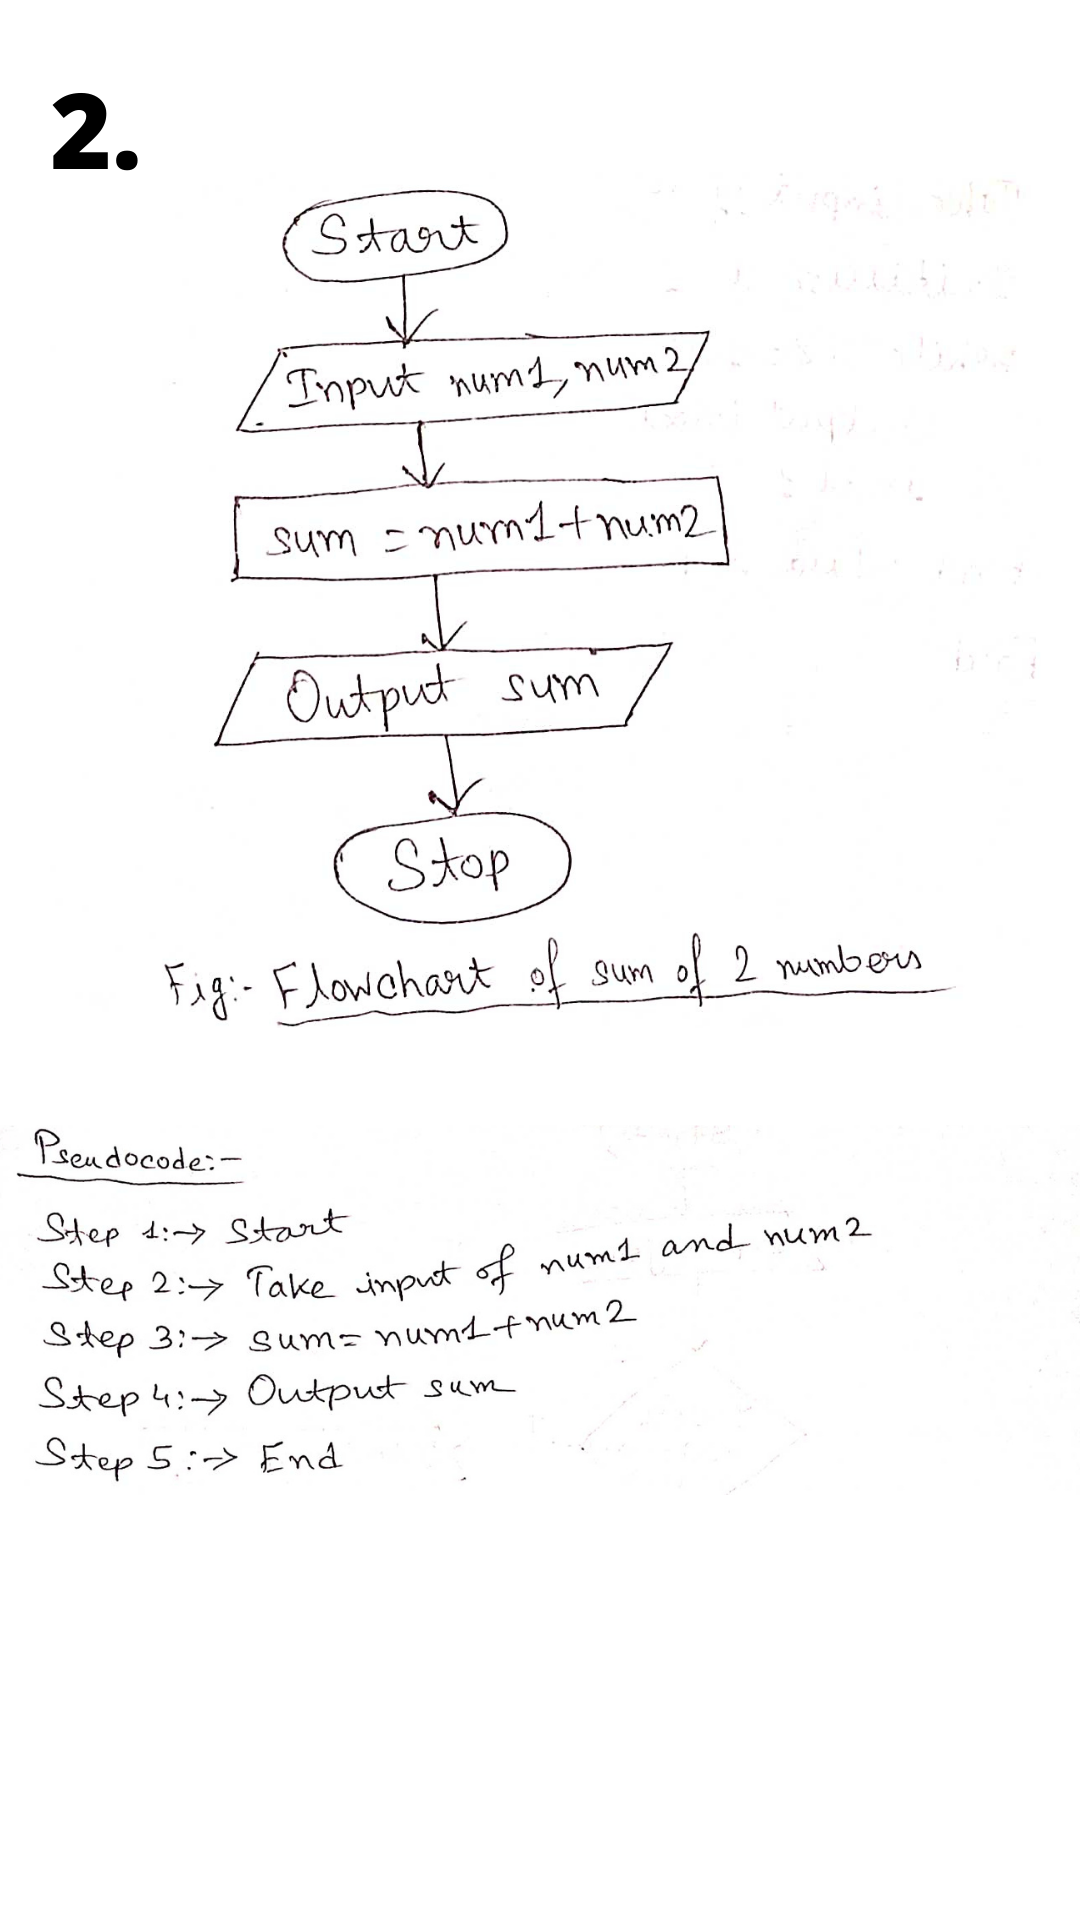 2.
Start
Input num1, num2
sum = num1+num2
Output sum
Stop
Fig:- Flowchart of sum of 2 numbers
Pseudocode:-
Step 1:→ Start
Step 2:→ Take input of num1 and num2
Step 3:→ sum= num1+num2
Step 4:→ Output sum
Step 5:→ End